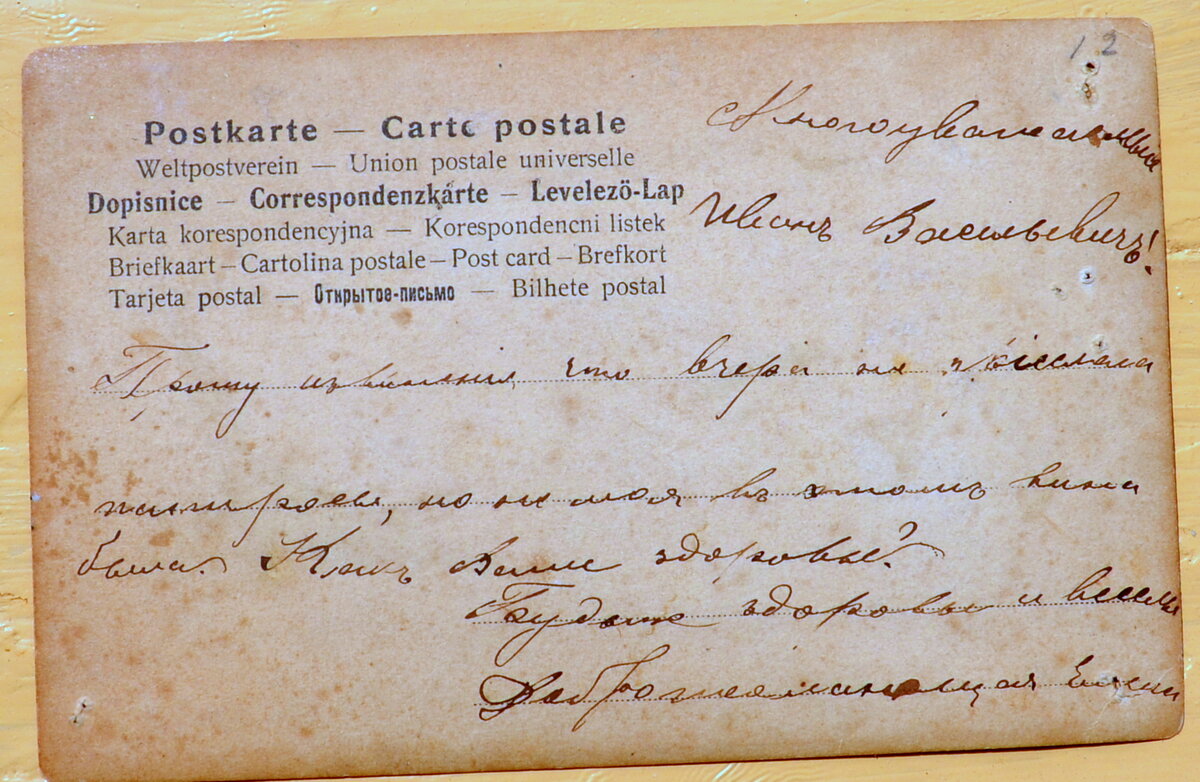 12
Postkarte — Carte postale
Weltpostverein — Union postale universelle
Dopisnice — Correspondenzkarte — Levelező-Lap
Karta korespondencyjna — Korespondencni listek
Briefkaart – Cartolina postale – Post card – Brefkort
Tarjeta postal — Открытое-письмо — Bilhete postal
Многоуважаемый
Иванъ Васильевичъ!
Прошу извинения, что вчера не прислала
папиросы, но не моя въ этомъ вина
была. Какъ Ваше здоровье?
Будьте здоровы и веселы
Доброжелающая